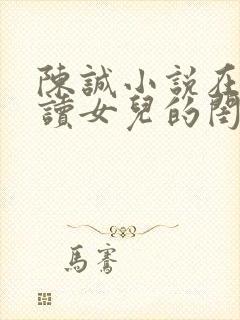 陳誠小説在
讀女兒的閨
馬騫